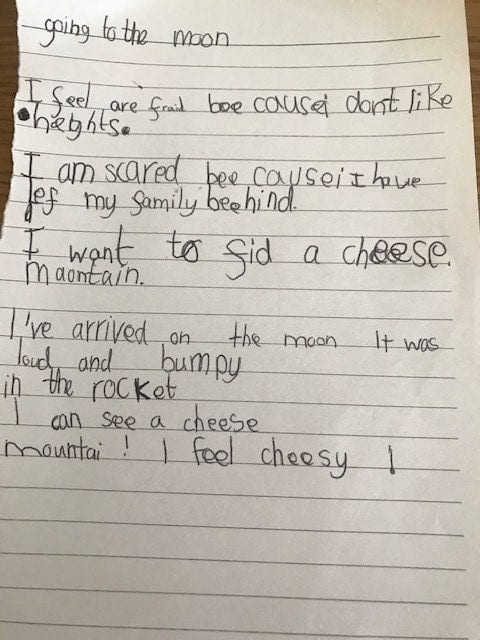 going to the moon
I feel are frail bee causei dont like
heights.
I am scared bee causei I have
lef my family beehind.
I want to fid a cheese.
maontain.
I've arrived on the moon It was
loud and bumpy
in the rocket
I can see a cheese
mountai ! I feel cheesy !